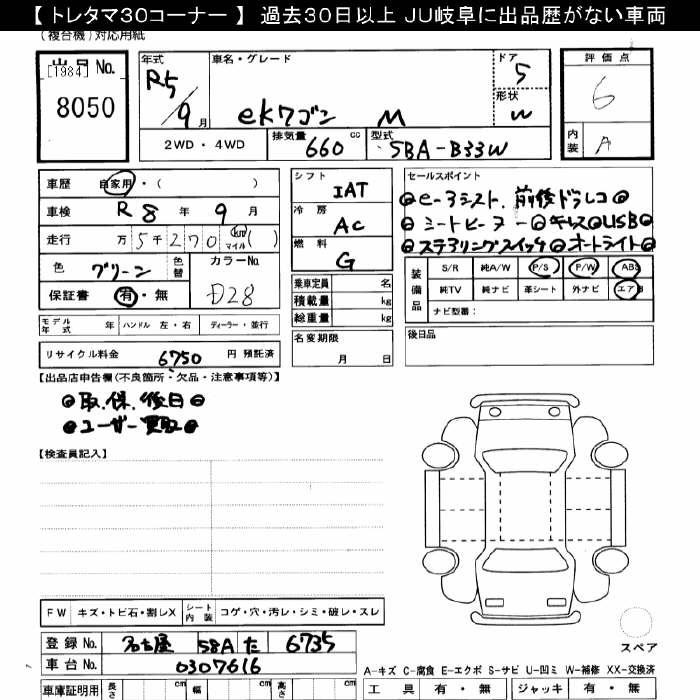 【 トレタマ30コーナー 】 過去30日以上 JU岐阜に出品歴がない車両
(複合機)対応用紙
出品 No.
[1984]
8050
年式
R5/9月
車名・グレード
ekワゴン M
ドア
5
形状
W
評価点
6
内装
A
2WD・4WD
排気量 660 cc
型式 5BA-B33W
車歴 自家用・( )
車検 R 8 年 9 月
走行 万 5 千 270 km マイル ( )
色 グリーン 色替
カラーNo. D28
保証書 有・無
シフト IAT
冷房 AC
燃料 G
乗車定員 名
積載量 kg
総重量 kg
名変期限
月 日
セールスポイント
◎e-アシスト. 前後ドラレコ◎
◎シートヒーター◎キーレス◎USB◎
◎ステアリングスイッチ◎オートライト◎
装備品
S/R 純A/W P/S P/W ABS
純TV 純ナビ 革シート 外ナビ エアB
ナビ型番:
後日品
モデル年式 年 ハンドル 左・右 ディーラー・並行
リサイクル料金 6750 円 預託済
【出品店申告欄(不良箇所・欠品・注意事項等)】
◎取.保.後日◎
◎ユーザー買取◎
【検査員記入】
FW キズ・トビ石・割レX シート内装 コゲ・穴・汚レ・シミ・破レ・スレ
登録 No. 名古屋 58A た 6735
車台 No. 0307616
車庫証明用 長さ cm 幅 cm 高さ cm
スペア
A-キズ C-腐食 E-エクボ S-サビ U-凹ミ W-補修 XX-交換済
工具 有・無 ジャッキ 有・無